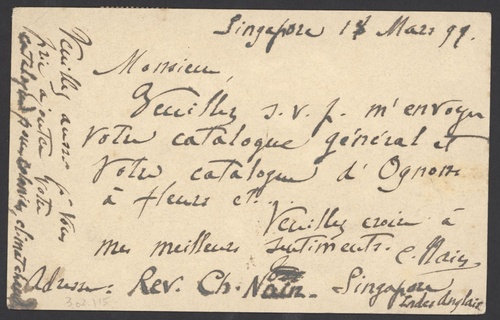 Singapore 18 Mars 99.
Monsieur,
Veuillez s.v.p. m'envoyer
votre catalogue général et
votre catalogue d'Ognons
à fleurs etc.
Veuillez croire à
mes meilleurs sentiments. C. Nain
Adresse: Rev. Ch. Nain. Singapore
Indes Anglaises
Veuillez aussi je vous
prie ajouter votre
catalogue pour colonies, climat chaud
302.115